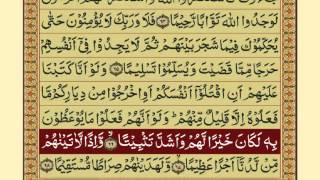 لَوَجَدُوا اللّٰهَ تَوَّابًا رَّحِيْمًا ﴿۶۴﴾ فَلَا وَرَبِّكَ لَا يُؤْمِنُوْنَ حَتّٰى
يُحَكِّمُوْكَ فِيْمَا شَجَرَ بَيْنَهُمْ ثُمَّ لَا يَجِدُوْا فِىْۤ اَنْفُسِهِمْ
حَرَجًا مِّمَّا قَضَيْتَ وَيُسَلِّمُوْا تَسْلِيْمًا ﴿۶۵﴾ وَلَوْ اَنَّا كَتَبْنَا
عَلَيْهِمْ اَنِ اقْتُلُوْۤا اَنْفُسَكُمْ اَوِ اخْرُجُوْا مِنْ دِيَارِكُمْ مَّا
فَعَلُوْهُ اِلَّا قَلِيْلٌ مِّنْهُمْ ؕ وَلَوْ اَنَّهُمْ فَعَلُوْا مَا يُوْعَظُوْنَ
بِهٖ لَكَانَ خَيْرًا لَّهُمْ وَاَشَدَّ تَثْبِيْتًا ﴿۶۶﴾ وَّاِذًا لَّاٰتَيْنٰهُمْ
مِّنْ لَّدُنَّاۤ اَجْرًا عَظِيْمًا ﴿۶۷﴾ وَّلَهَدَيْنٰهُمْ صِرَاطًا مُّسْتَقِيْمًا ﴿۶۸﴾